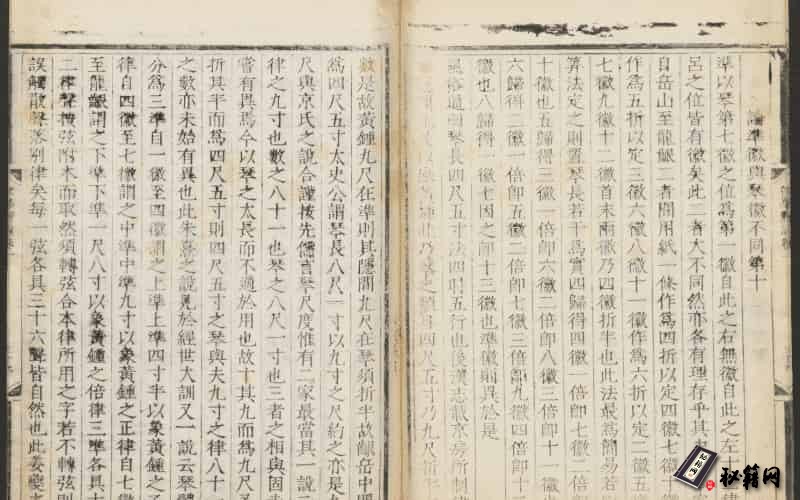 論準徽與琴徽不同第十
準以琴第七徽之位爲第一徽自此之右無徽自此之左十
呂之位皆有徽矣此二者大不同然亦各有理存乎其
自岳山至龍齦二者間用紙一條作爲四折以定四徽七徽十
作爲五折以定三徽六徽八徽十一徽作爲六折以定二徽五
七徽九徽十二徽首末兩徽乃四徽折半也此法最爲簡易若
算法定之則置琴長若干爲實四歸得四徽一倍卽七徽二
十徽也五歸得三徽一倍卽六徽二倍卽八徽三倍卽十
六歸得二徽一倍卽五徽二倍卽九徽四倍卽
徽也八歸得一徽七因之卽十三徽也準徽則異於是
風俗通曰琴長四尺五寸法四時五行也後漢志載京房所制
四尺五寸乃九尺
數是故黃鍾九尺在準則其隱間九尺在琴須折半故齦岳中間
爲四尺五寸太史公謂琴長八尺一寸以九寸之尺約之亦是九
尺與京氏之說合謹按先儒言琴尺度惟有二家最當其一說
律之九寸也數之八十一也琴之八尺一寸也三者之相與固未
嘗有異焉今以琴之太長而不適於用也故十其九而爲九尺
折其半而爲四尺五寸則四尺五寸之琴與夫九寸之律八十
之數亦未始有異也此朱熹之說見於經世大訓又一說云琴體
分爲三準自一徽至四徽謂之上準上準四寸半以象黃鍾之子
律自四徽至七徽謂之中準中準九寸以象黃鍾之正律自七徽
至龍齦謂之下準下準一尺八寸以象黃鍾之倍律三準各具十
二律聲按弦附木而取然須轉弦合本律所用之字若不轉弦則
誤觸散聲落別律矣每一弦各具三十六聲皆自然也此姜夔之
秘籍网